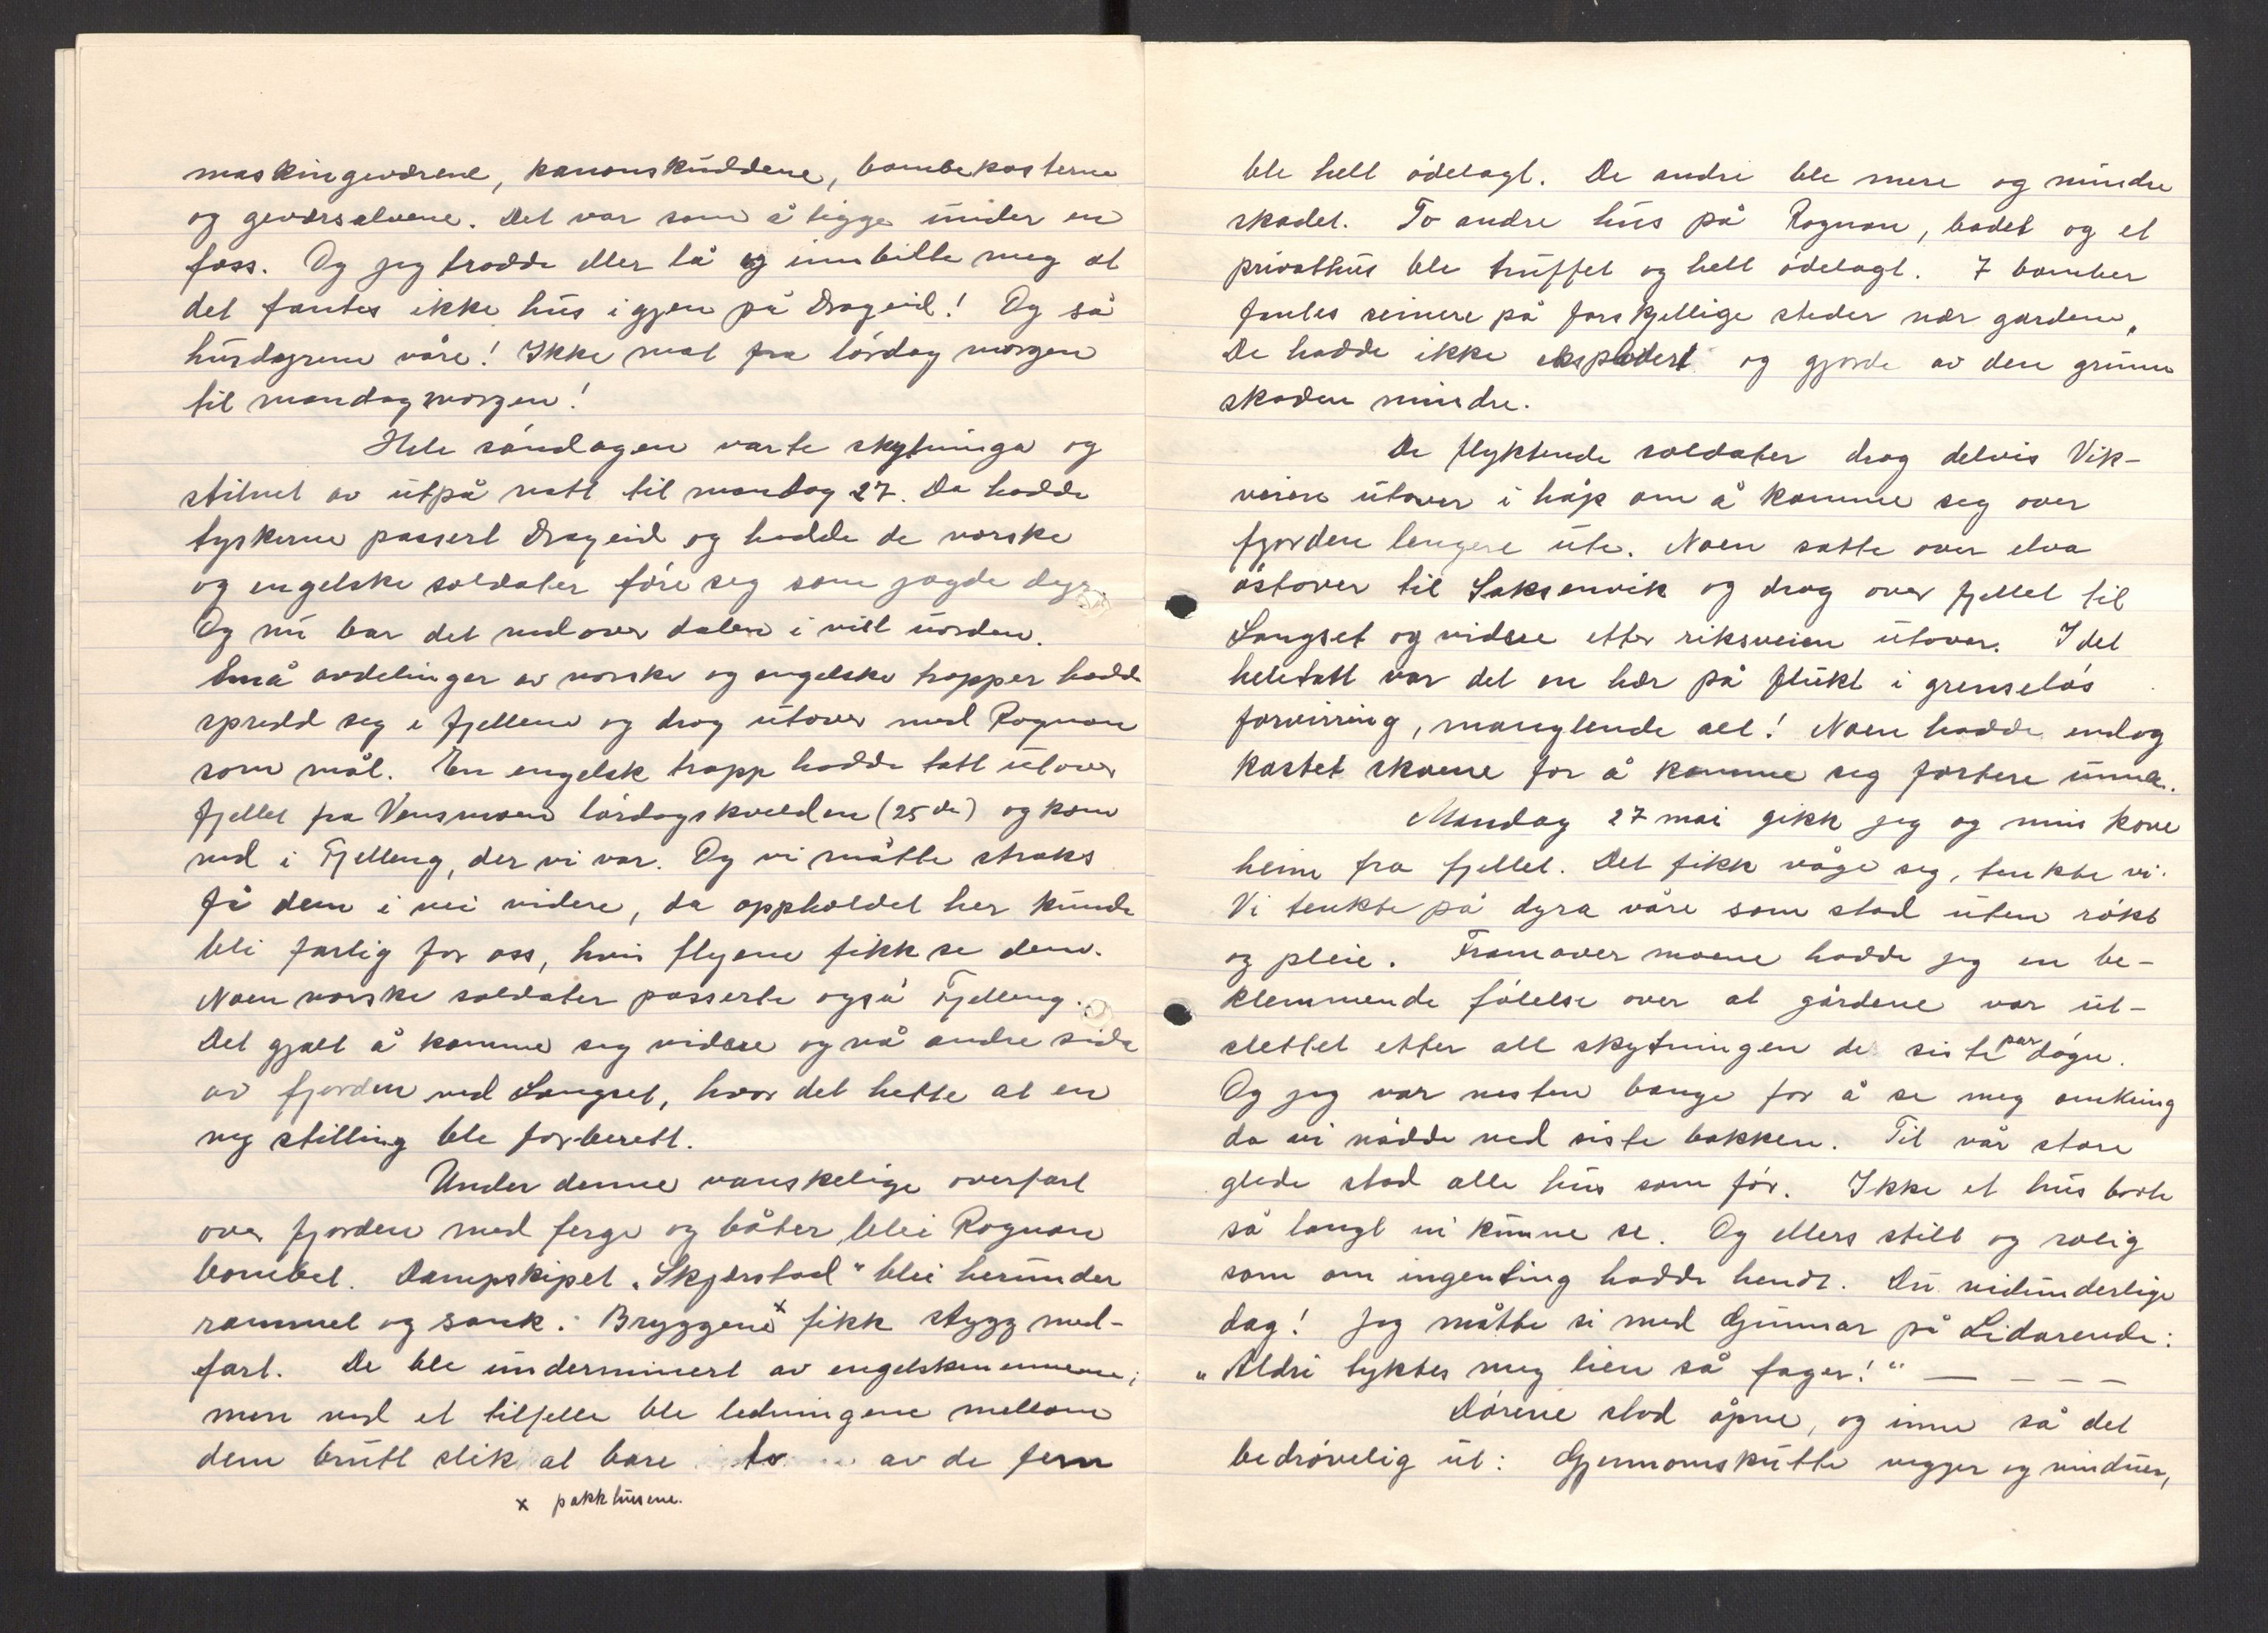 maskingeværene, kanonskuddene, bombekasterne
og geværsalvene. Det var som å ligge under en
foss. Og jeg trodde eller lå og innbille meg at
det fantes ikke hus igjen på Drageid! Og så
husdyrene våre! Ikke mat fra lørdag morgen
til mandag morgen!
Hele søndagen varte skytninga og
stilnet av utpå natt til mandag 27. Da hadde
tyskerne passert Drageid og hadde de norske
og engelske soldater føre seg som jagde dyr.
Og nu bar det nedover dalen i vill uorden.
Små avdelinger av norske og engelske tropper hadde
spredd seg i fjellene og drog utover med Rognan
som mål. En engelsk tropp hadde tatt utover
fjellet fra Vensmoen lørdagskvelden (25de) og kom
ned i Fjelleng, der vi var. Og vi måtte straks
få dem i vei videre, da oppholdet her kunde
bli farlig for oss, hvis flyene fikk se dem.
Noen norske soldater passerte også Fjelleng.
Det gjalt å komme seg videre og nå andre side
av fjorden ved Langset, hvor det hette at en
ny stilling ble forberett.
Under denne vanskelige overfart
over fjorden med ferge og båter, blei Rognan
bombet. Dampskipet „Skjerstad" blei herunder
rammet og sank. Bryggene x fikk stygg med-
fart. De ble underminert av engelskmennene;
men ved et tilfelle ble ledningene mellom
dem brutt slik at bare to av de fem
x pakkhusene.
ble helt ødelagt. De andre ble mere og mindre
skadet. To andre hus på Rognan, badet og et
privathus ble truffet og helt ødelagt. 7 bomber
fantes seinere på forskjellige steder nær gardene,
De hadde ikke eksplodert og gjorde av den grunn
skaden mindre.
De flyktende soldater drog delvis Vik-
veien utover i håp om å komme seg over
fjorden lengere ute. Noen satte over elva
østover til Saksenvik og drog over fjellet til
Langset og videre etter riksveien utover. I det
heletatt var det en hær på flukt i grenseløs
forvirring, manglende alt! Noen hadde endog
kastet skoene for å komme seg fortere unna.
Mandag 27 mai gikk jeg og min kone
heim fra fjellet. Det fikk våge seg, tenkte vi.
Vi tenkte på dyra våre som stod uten røkt
og pleie. Framover moene hadde jeg en be-
klemmende følelse over at gårdene var ut-
slettet etter all skytningen de siste par døgn.
Og jeg var nesten bange for å se meg omkring
da vi nådde ned siste bakken. Til vår store
glede stod alle hus som før. Ikke et hus borte
så langt vi kunne se. Og ellers still og rolig
som om ingenting hadde hendt. Du vidunderlige
dag! Jeg måtte si med Gunnar på Lidarende:
„Aldri tyktes meg lien så fager!" — — — —
Dørene stod åpne, og inne så det
bedrøvelig ut: Gjennomskutte vegger og vinduer,